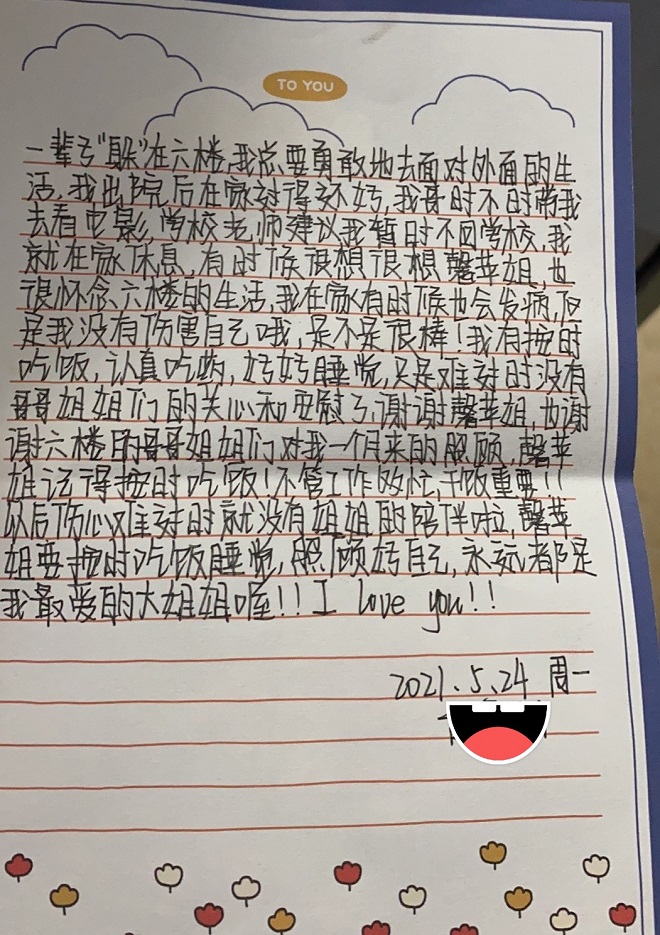 TO YOU
一辈子“躲”在六楼,我总要勇敢地去面对外面的生
活,我出院后在家过得还不错,我哥时不时带我
去看电影,学校老师建议我暂时不回学校,我
就在家休息,有时候很想很想馨苹姐,也
很怀念六楼的生活,我在家有时候也会发病,但
是我没有伤害自己哦,是不是很棒!我有按时
吃饭,认真吃药,好好睡觉,只是难过时没有
哥哥姐姐们的关心和安慰了,谢谢馨苹姐,也谢
谢六楼的哥哥姐姐们对我一个月来的照顾,馨苹
姐记得按时吃饭!不管工作多忙,干饭重要!!
以后伤心难过时就没有姐姐的陪伴啦,馨苹
姐要按时吃饭睡觉,照顾好自己,永远都是
我最爱的大姐姐喔!!I love you!!
2021.5.24 周一